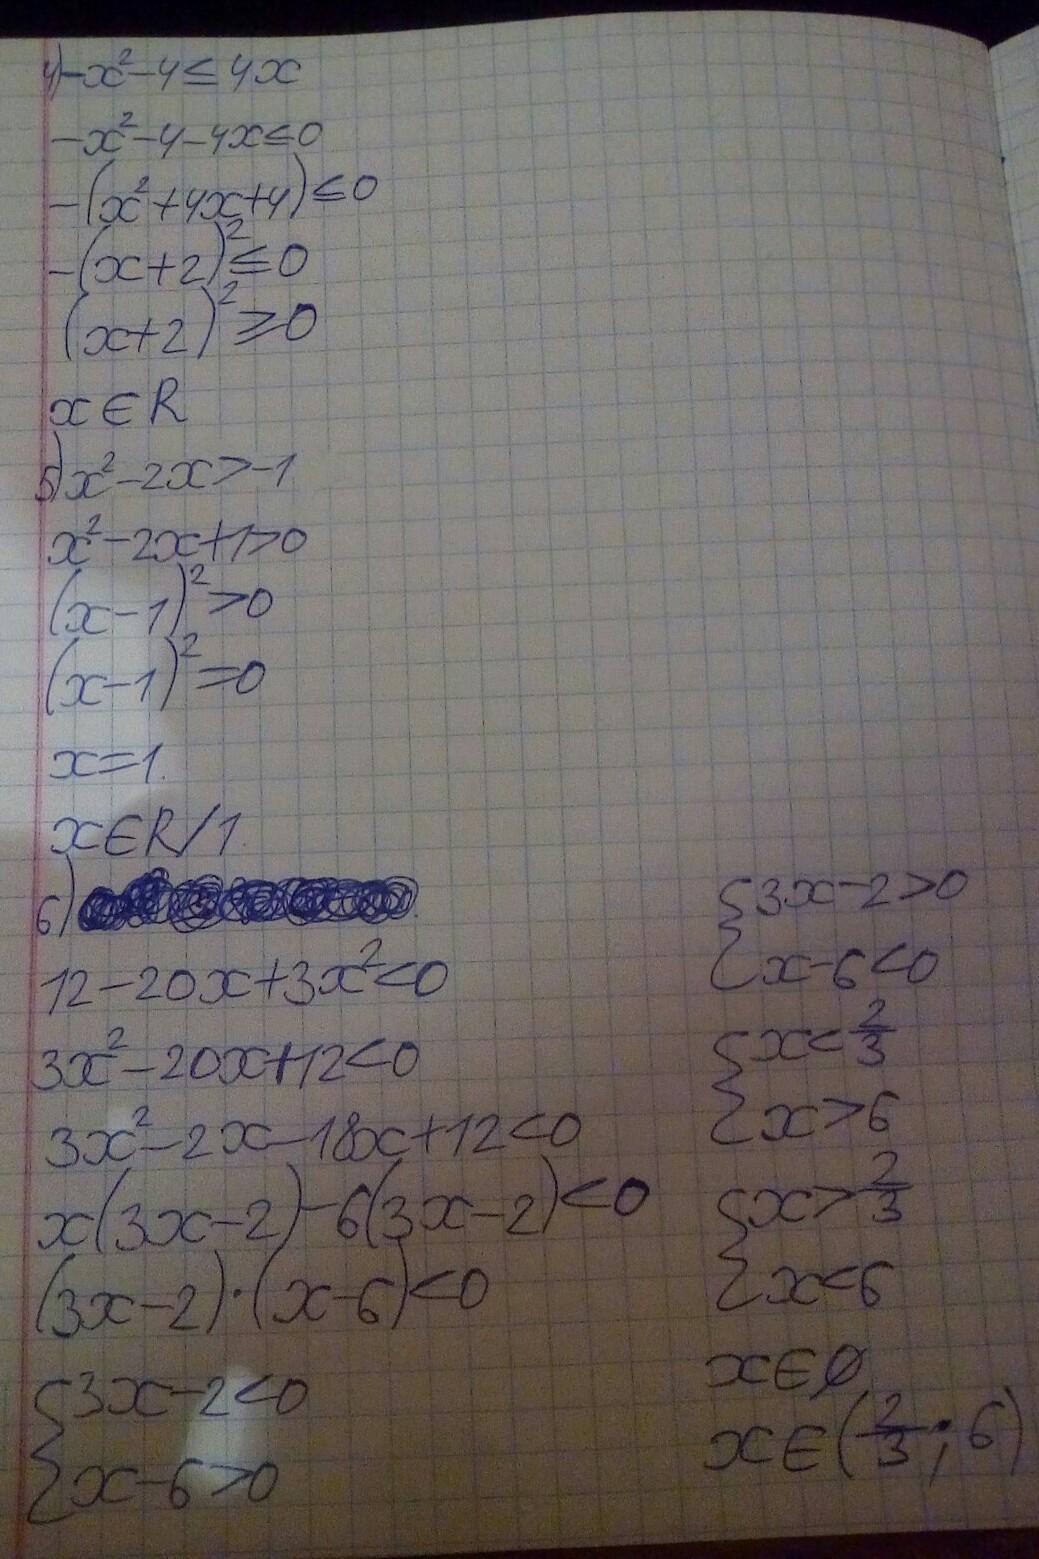 4) -x²-4≤4x
-x²-4-4x≤0
-(x²+4x+4)≤0
-(x+2)²≤0
(x+2)²≥0
x∈R
5) x²-2x>-1
x²-2x+1>0
(x-1)²>0
(x-1)²=0
x=1.
x∈R/1.
6)
12-20x+3x²<0
3x²-20x+12<0
3x²-2x-18x+12<0
x(3x-2)-6(3x-2)<0
(3x-2)·(x-6)<0
{3x-2<0
{x-6>0
{3x-2>0
{x-6<0
{x<2/3
{x>6
{x>2/3
{x<6
x∈∅
x∈(2/3;6)